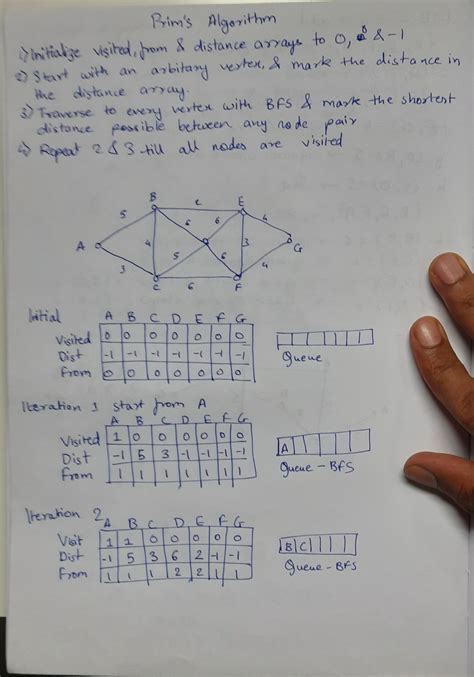 Prim's Algorithm
1) Initialize visited, from & distance arrays to 0, & -1
2) Start with an arbitary vertex, & mark the distance in
the distance array.
3) Traverse to every vertex with BFS & mark the shortest
distance possible between any node pair
4) Repeat 2 & 3 till all nodes are visited
B E
5 6 6 4
A 4 3 G
3 5 6 4
C 6 F
Initial A B C D E F G
Visited 0 0 0 0 0 0 0
Dist -1 -1 -1 -1 -1 -1 -1
From 0 0 0 0 0 0 0
Queue
Iteration 1 start from A
A B C D E F G
Visited 1 0 0 0 0 0 0
Dist -1 5 3 -1 -1 -1 -1
From 1 1 1 1 1 1 1
A
Queue - BFS
Iteration 2
A B C D E F G
Visit 1 1 0 0 0 0 0
Dist -1 5 3 6 2 -1 -1
From 1 1 1 2 2 1 1
B C
Queue - BFS